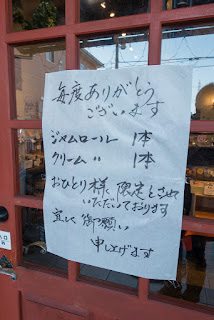 毎度ありがとう
ございます
ジャムロール 1本
クリーム 〃 1本
おひとり様、限定とさせ
いただいております
宜しく御願い
申し上げます